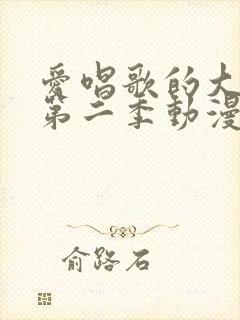 愛唱歌的大
第二季動漫
俞路石